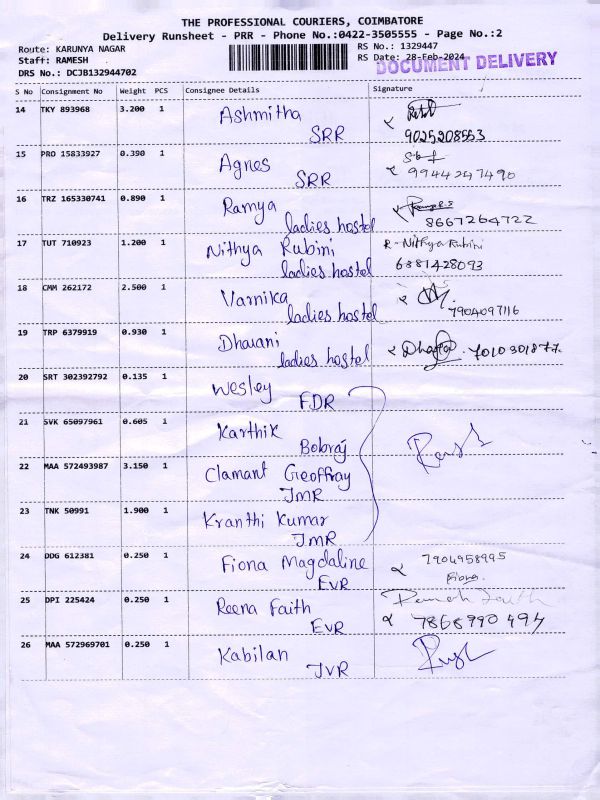 THE PROFESSIONAL COURIERS, COIMBATORE
Delivery Runsheet - PRR - Phone No.:0422-3505555 - Page No.:2
Route: KARUNYA NAGAR
RS No.: 1329447
Staff: RAMESH
RS Date: 28-Feb-2024
DOCUMENT DELIVERY
DRS No.: DCJB132944702
S No Consignment No Weight PCS Consignee Details Signature
14 TKY 893968 3.200 1 Ashmitha
SRR 9025208553
15 PRO 15833927 0.390 1 Agnes
SRR 9944247490
16 TRZ 165330741 0.890 1 Ramya
ladies hostel 8667264722
17 TUT 710923 1.200 1 Nithya Rubini R-Nithya Rubini
ladies hostel 6381428093
18 CMM 262172 2.500 1 Varnika
ladies hostel 7904097116
19 TRP 6379919 0.930 1 Dharani
ladies hostel
20 SRT 302392792 0.135 1 Wesley
FDR
21 SVK 65097961 0.605 1 Karthik
Bobraj
22 MAA 572493987 3.150 1 Clamant Geoffray
JMR
23 TNK 50991 1.900 1 Kranthi Kumar
JMR
24 DDG 612381 0.250 1 Fiona Magdaline 7904958995
EVR Fiona.
25 DPI 225424 0.250 1 Reena Faith
EVR 7868990494
26 MAA 572969701 0.250 1 Kabilan
JVR